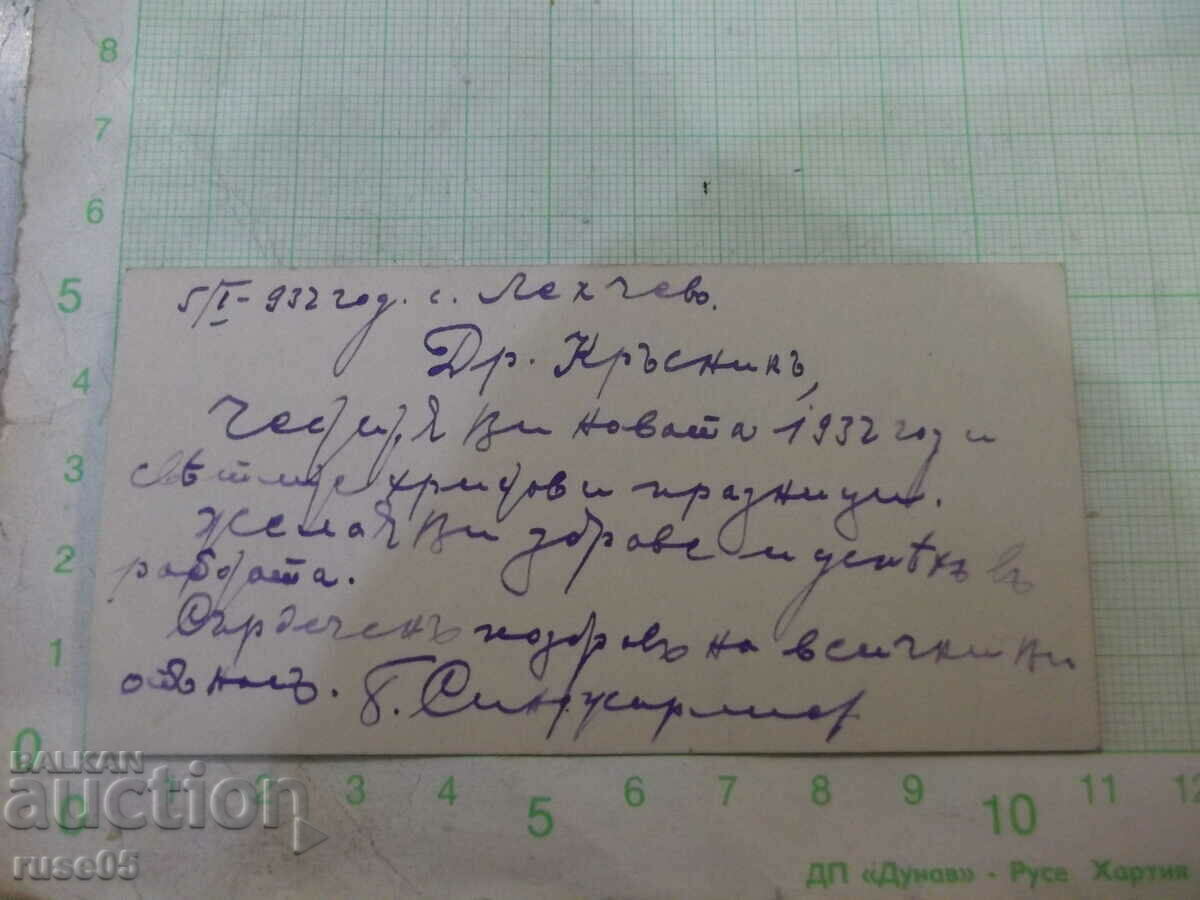 8
7
6
5
4
3
2
1
0
5/I-932 год. с. Лехчево.
Др. Кръсникъ,
Честитя Ви новата 1932 год и
свѣтлите христови празници.
Желая Ви здраве и успѣхъ въ
работата.
Сърдеченъ поздравъ на всички Ви
отъ насъ.
0 1 2 3 4 5 6 7 8 9 10 11 12
BALKAN
auction
ruse05
ДП «Дунав» - Русе Хартия